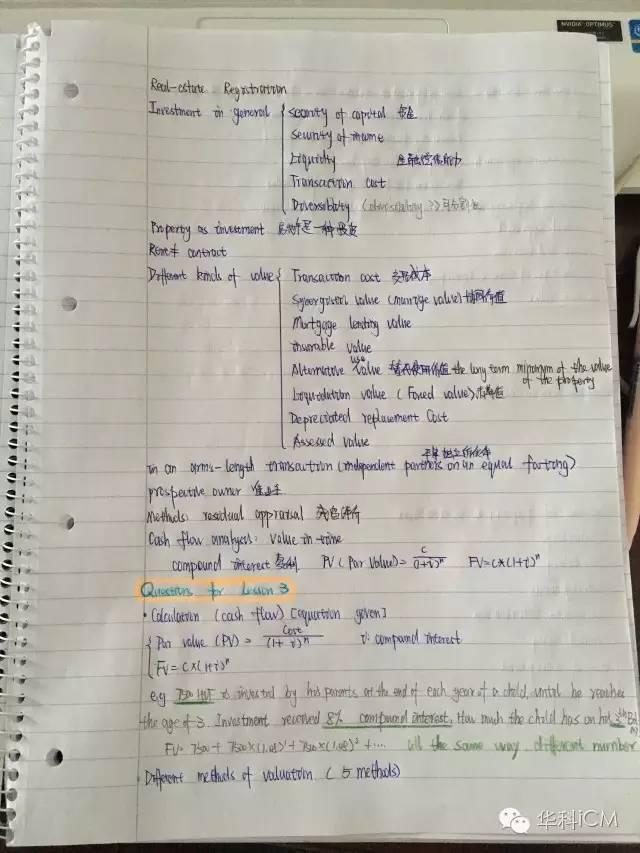 NVIDIA OPTIMUS
Real-estate Registration
Investment in general { security of capital 安全
security of income
Liquidity
Transaction cost
Diversibility
Property as investment 是一种投资
Rent≠ contract
Different kinds of value { Transaction cost 交易成本
Synergistic value (marriage value) 协同价值
Mortgage lending value
insurable value
Alternative use value 替代使用价值 the long term minimum of the value
of the property
Liquidation value (Forced value) 清算值
Depreciated replacement cost
Assessed value
in an arms-length transaction (independent partners on an equal footing)
prospective owner 准业主
Methods: residual appraisal
Cash flow analyses: value in time
compound interest 复利 PV (Par Value) = C/(1+i)^n FV=C*(1+i)^n
Questions for Lesson 3
• Calculation (cash flow) [equation given]
{ Par value (PV) = Cost/(1+i)^n i: compound interest
FV=C×(1+i)^n
e.g 750 HUF is invested by his parents at the end of each year of a child, until he reaches
the age of 3. Investment received 8% compound interest. How much the child has on his 3th
FV= 750+ 750×(1.08)^1+750×(1.08)^2+... all the same way different number
• Different methods of valuation (5 methods)
华科iCM